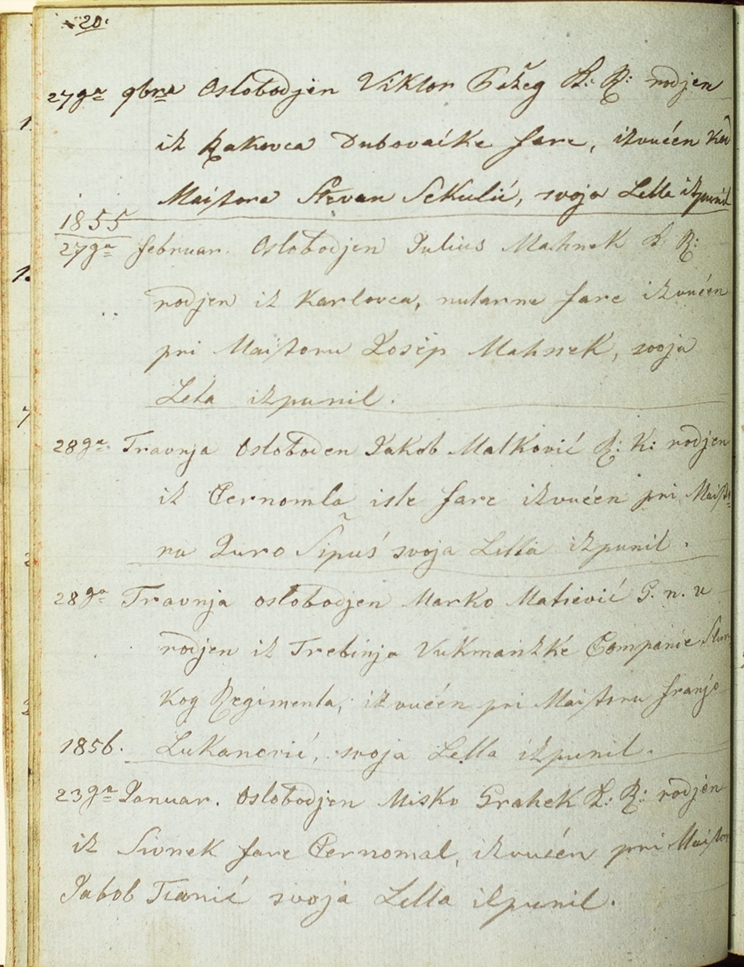 20.
27ga 9bra Oslobodjen Viktor R: rodjen
iz Rakovca Dubovačke fare, izvučen kod
Majstora Stevan Sekulić, svoja Letta izpunil
1855
27ga februar. Oslobodjen Julius Mahnek R: R:
rodjen iz Karlovca, nutarne fare izvučen
pri Majstoru Josip Mahnek, svoja
Leta izpunil.
28ga Travnja Osloboden Jakob Malković R: K: rodjen
iz Černomla iste fare izvučen pri Majst
ru Juro Šipuš svoja Letta izpunil.
28ga Travnja oslobodjen Marko G. n. u
rodjen iz Trebinja Vukmanske Companie Slun
kog Regimenta, izvučen pri Majstoru franjo
1856. Lukanović, svoja Letta izpunil.
23ga Januar. Oslobodjen Misko Grahek R: R: rodjen
iz fare Černomal, izvučen pri Majstor
Jakob svoja Letta izpunil.